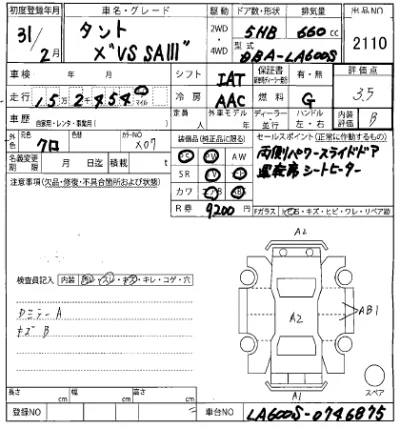 初度登録年月 車名・グレード 駆動 ドア数・形状 排気量 出品NO
31/2月 タント X"VS SAIII" 2WD・4WD 5HB 660cc 2110
型式 DBA-LA600S
車検 年 月 シフト IAT 保証書 有・無 評価点 3.5
走行 15万2454 マイル 冷房 AAC 燃料 G
車歴 自家用・レンタ・事業用 定員 人 外車モデル 年 ディーラー 並行 ハンドル 左・右 内装評価 B
外色 元色 クロ 色替 カラーNO X07
装備品(純正品に限る) セールスポイント(正常に作動するもの)
PS PW AW 両側パワースライドドア
名義変更期限 月 日迄 積載 t SR 運転席シートヒーター
注意事項(欠品・修復・不具合箇所および状態)
カワ ABS
R券 9200円 Fガラス ヒビ石・キズ・ヒビ・ワレ・リペア跡
A2
検査員記入 内装 キレ・コゲ・穴
ヤニテーA
キズB
A2 AB1
スペア
A1
長さ cm 幅 cm 高さ cm
登録NO 車台NO LA600S-0746875